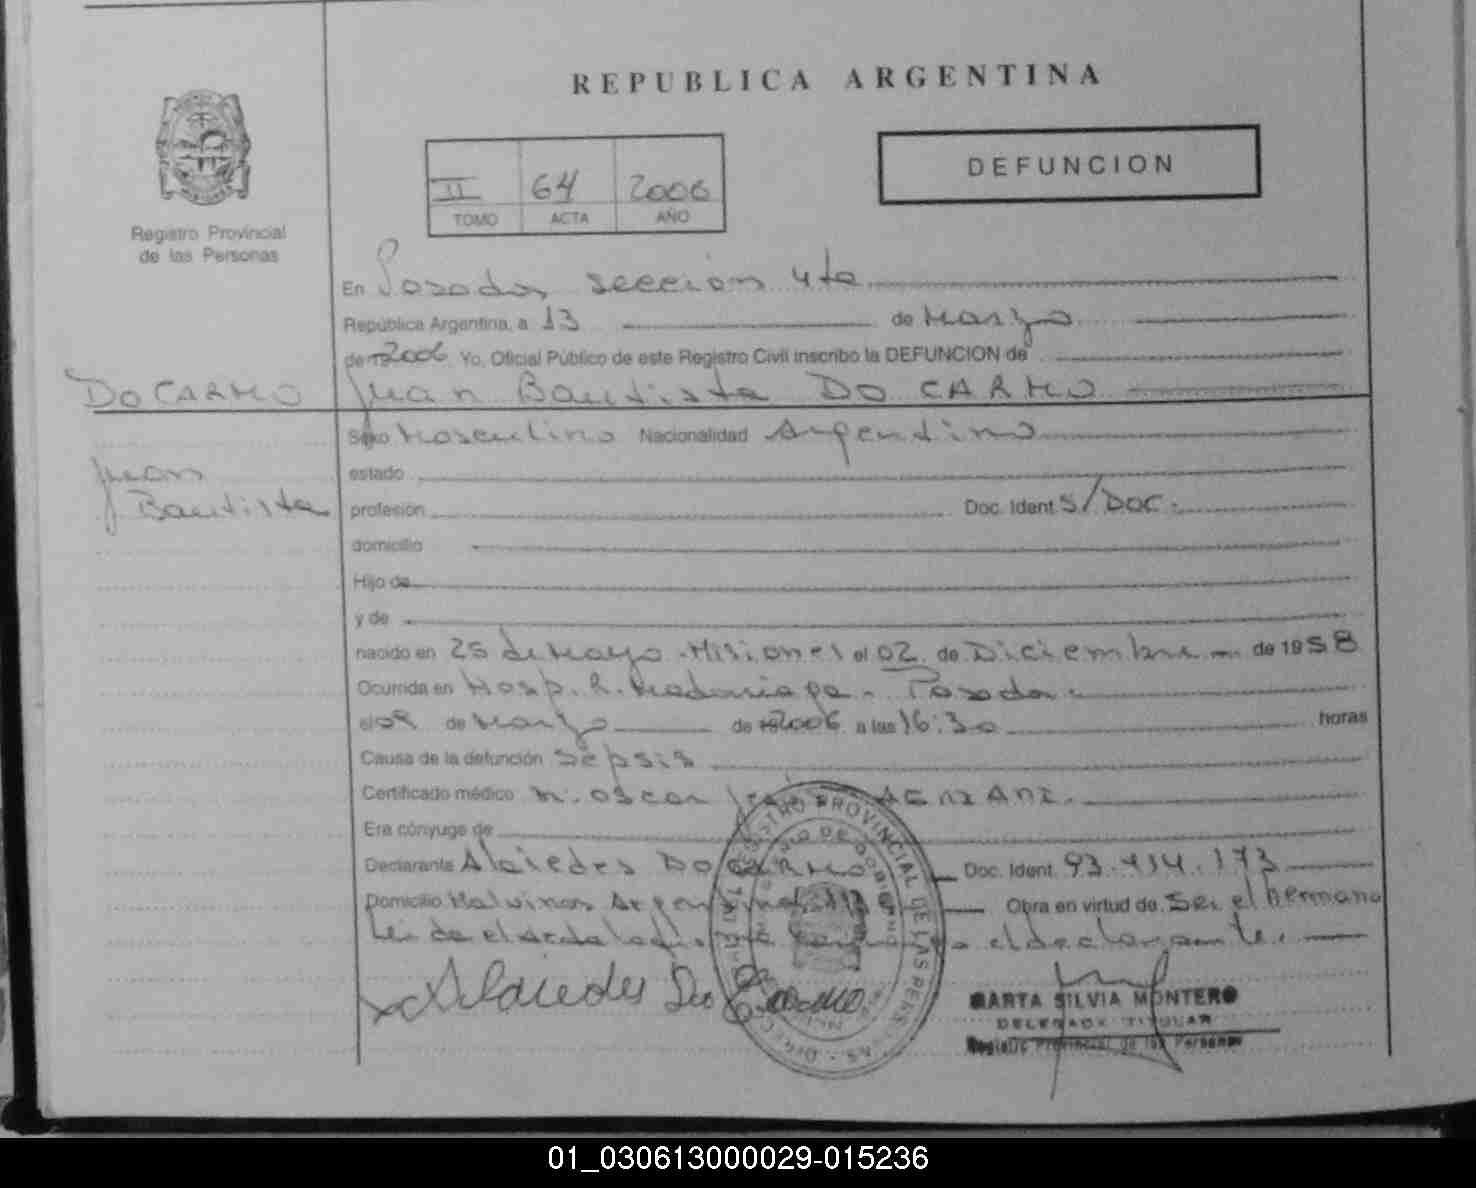 REPUBLICA ARGENTINA
Registro Provincial
de las Personas
II 64 2006
TOMO ACTA AÑO
DEFUNCION
En Posadas sección 4ta
República Argentina, a 13 de Marzo
de 19 2006 Yo, Oficial Público de este Registro Civil inscribo la DEFUNCION de
DO CARMO
Juan Bautista DO CARMO
Juan
Bautista
Sexo Masculino Nacionalidad Argentino
estado
profesión Doc. Ident. S/Doc.
domicilio
Hijo de
y de
nacido en 25 de Mayo - Misiones el 02 de Diciembre de 1958
Ocurrida en Hosp. R. Madariaga - Posadas
el de Marzo de 19 2006 a las 16:30 horas
Causa de la defunción Sepsis
Certificado médico Oscar
Era cónyuge de
Declarante Alcides DO CARMO Doc. Ident. 93.414.173
Domicilio Malvinas Argentinas Obra en virtud de Ser el hermano
Leída el acta la el declarante.
Alcides Do Carmo
REGISTRO PROVINCIAL DE LAS PERSONAS
MARTA SILVIA MONTERO
DELEGADA TITULAR
Registro Provincial de las Personas
01_030613000029-015236